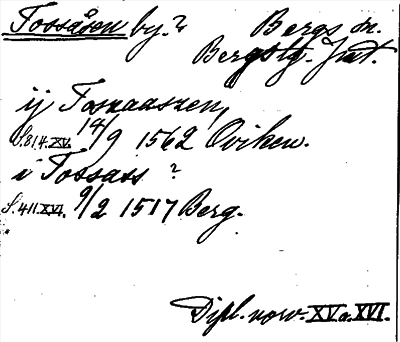 Fossåsen by.? Bergs sn.
Bergs tg. Jmt.
ij Fosnaaszen,
S.814.XV. 14/9 1562 Oviken.
i Fossass ?
S.411.XVI. 9/2 1517 Berg.
Dipl. norv. XV o. XVI.